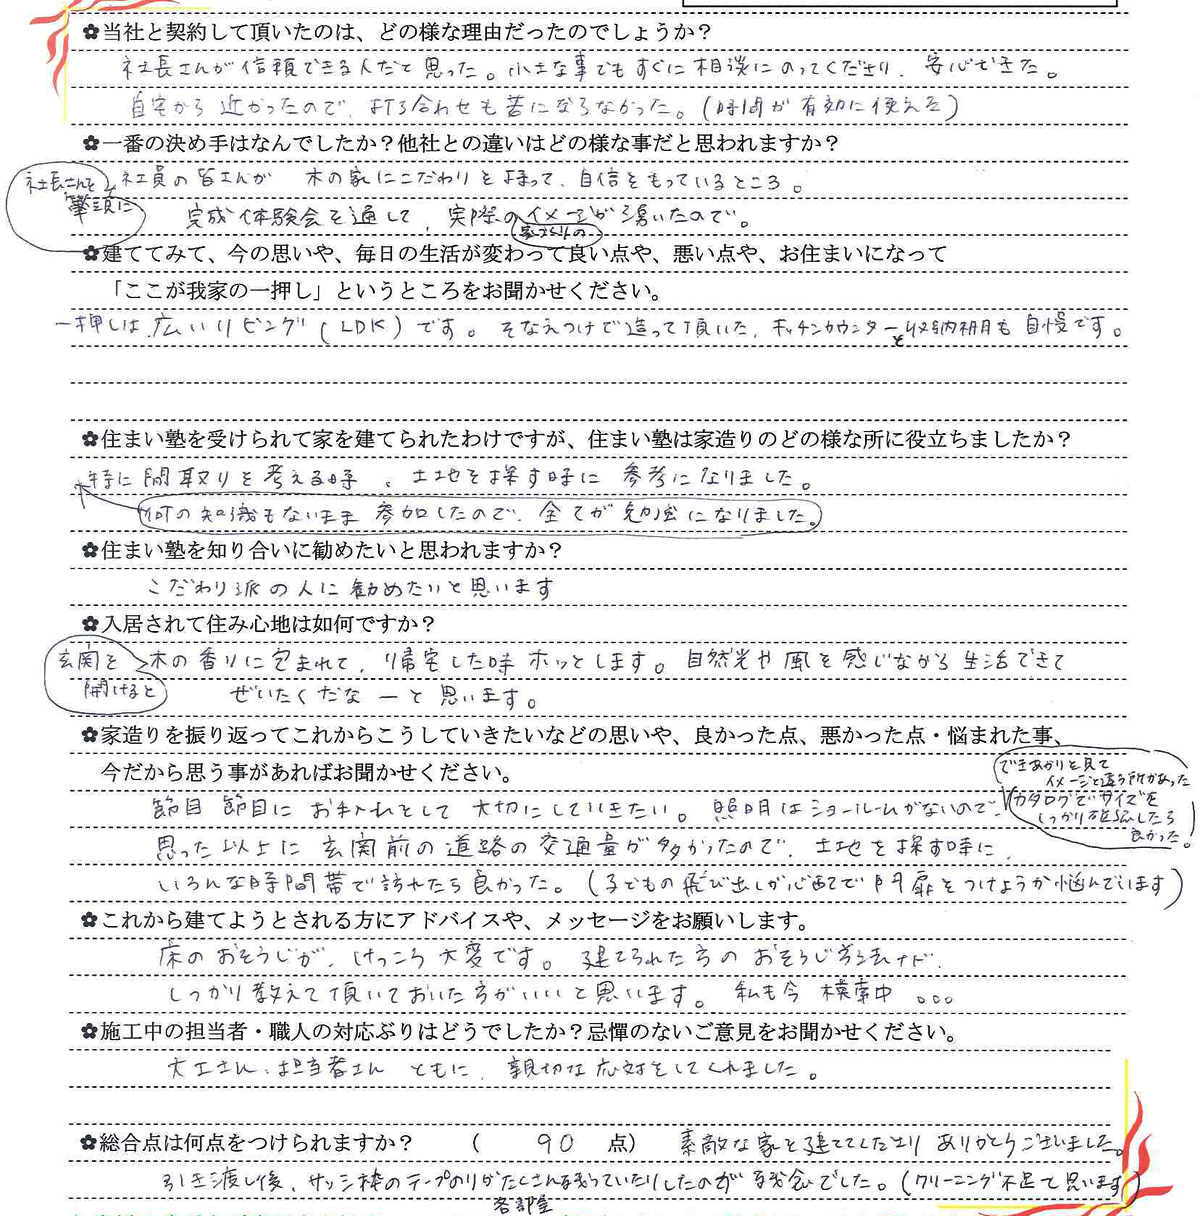 ✿当社と契約して頂いたのは、どの様な理由だったのでしょうか？
社長さんが信頼できる人だと思った。小さな事でもすぐに相談にのってくださり、安心できた。
自宅から近かったので、打ち合わせも苦にならなかった。(時間が有効に使えた)
✿一番の決め手はなんでしたか？他社との違いはどの様な事だと思われますか？
社長さんを筆頭に、社員の皆さんが木の家にこだわりを持って、自信をもっているところ。
完成体験会を通して、実際の家づくりのイメージが湧いたので。
✿建ててみて、今の思いや、毎日の生活が変わって良い点や、悪い点や、お住まいになって
「ここが我家の一押し」というところをお聞かせください。
一押しは、広いリビング(LDK)です。そなえつけで造って頂いた、キッチンカウンターと収納棚も自慢です。
✿住まい塾を受けられて家を建てられたわけですが、住まい塾は家造りのどの様な所に役立ちましたか？
特に間取りを考える時、土地を探す時に参考になりました。
何の知識もないまま参加したので、全てが勉強になりました。
✿住まい塾を知り合いに勧めたいと思われますか？
こだわり派の人に勧めたいと思います
✿入居されて住み心地は如何ですか？
玄関を開けると木の香りに包まれて、帰宅した時ホッとします。自然光や風を感じながら生活できて
ぜいたくだなーと思います。
✿家造りを振り返ってこれからこうしていきたいなどの思いや、良かった点、悪かった点・悩まれた事、
今だから思う事があればお聞かせください。
節目節目にお手入れをして大切にしていきたい。照明はショールームがないので、
できあがりを見て
イメージと違う所があった
カタログでサイズを
しっかり確認したら
良かった。
思った以上に玄関前の道路の交通量が多かったので、土地を探す時に、
いろんな時間帯で訪れたら良かった。(子どもの飛び出しが心配で門扉をつけようか悩んでいます)
✿これから建てようとされる方にアドバイスや、メッセージをお願いします。
床のおそうじが、けっこう大変です。建てられた方のおそうじ方法など、
しっかり教えて頂いておいた方がいいと思います。私も今模索中。。。
✿施工中の担当者・職人の対応ぶりはどうでしたか？忌憚のないご意見をお聞かせください。
大工さん、担当者さんともに、親切な応対をしてくれました。
✿総合点は何点をつけられますか？ ( 90 点) 素敵な家を建ててくださり ありがとうございました。
引き渡し後、サッシ枠のテープのりがたくさん残っていたりしたのが残念でした。(クリーニング不足で思います)
各部室